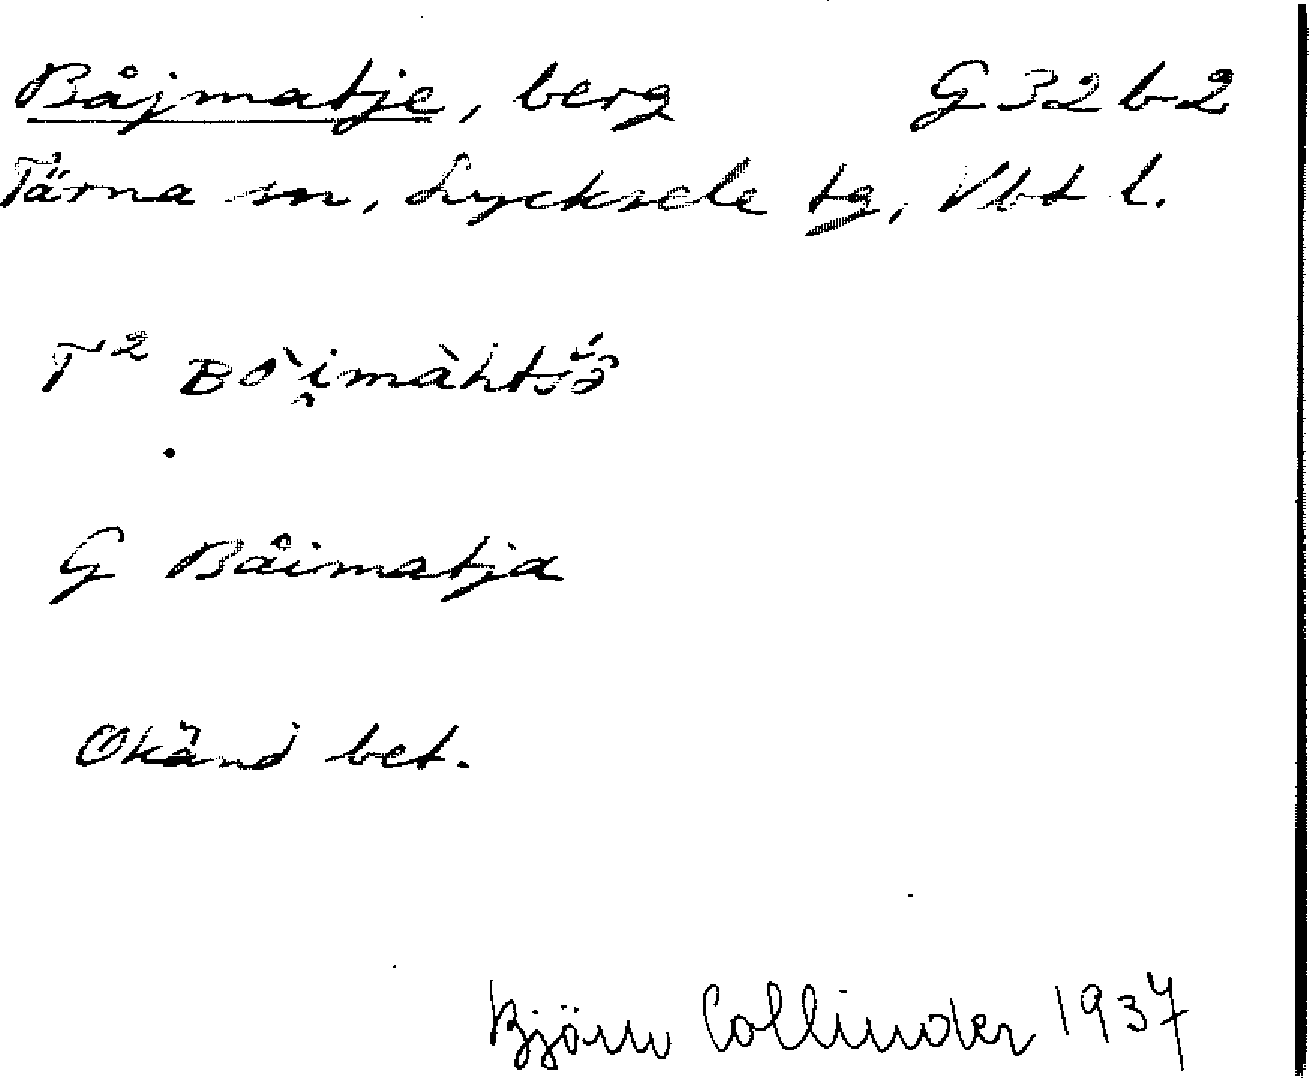 Båjmatje, berg G 32 b 2
Tärna sn, Lycksele tg, Vbt l.
T²
G Båimatja
Okänd bet.
Björn Collinder 1937